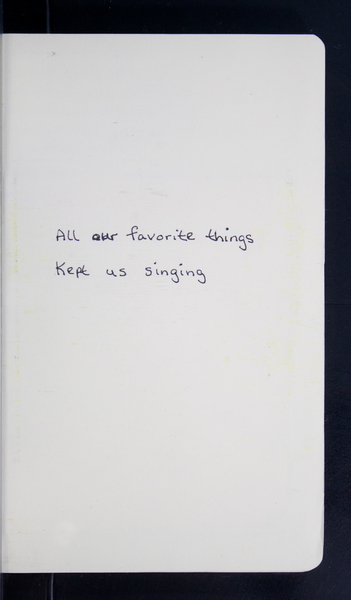 All our favorite things
Kept us singing